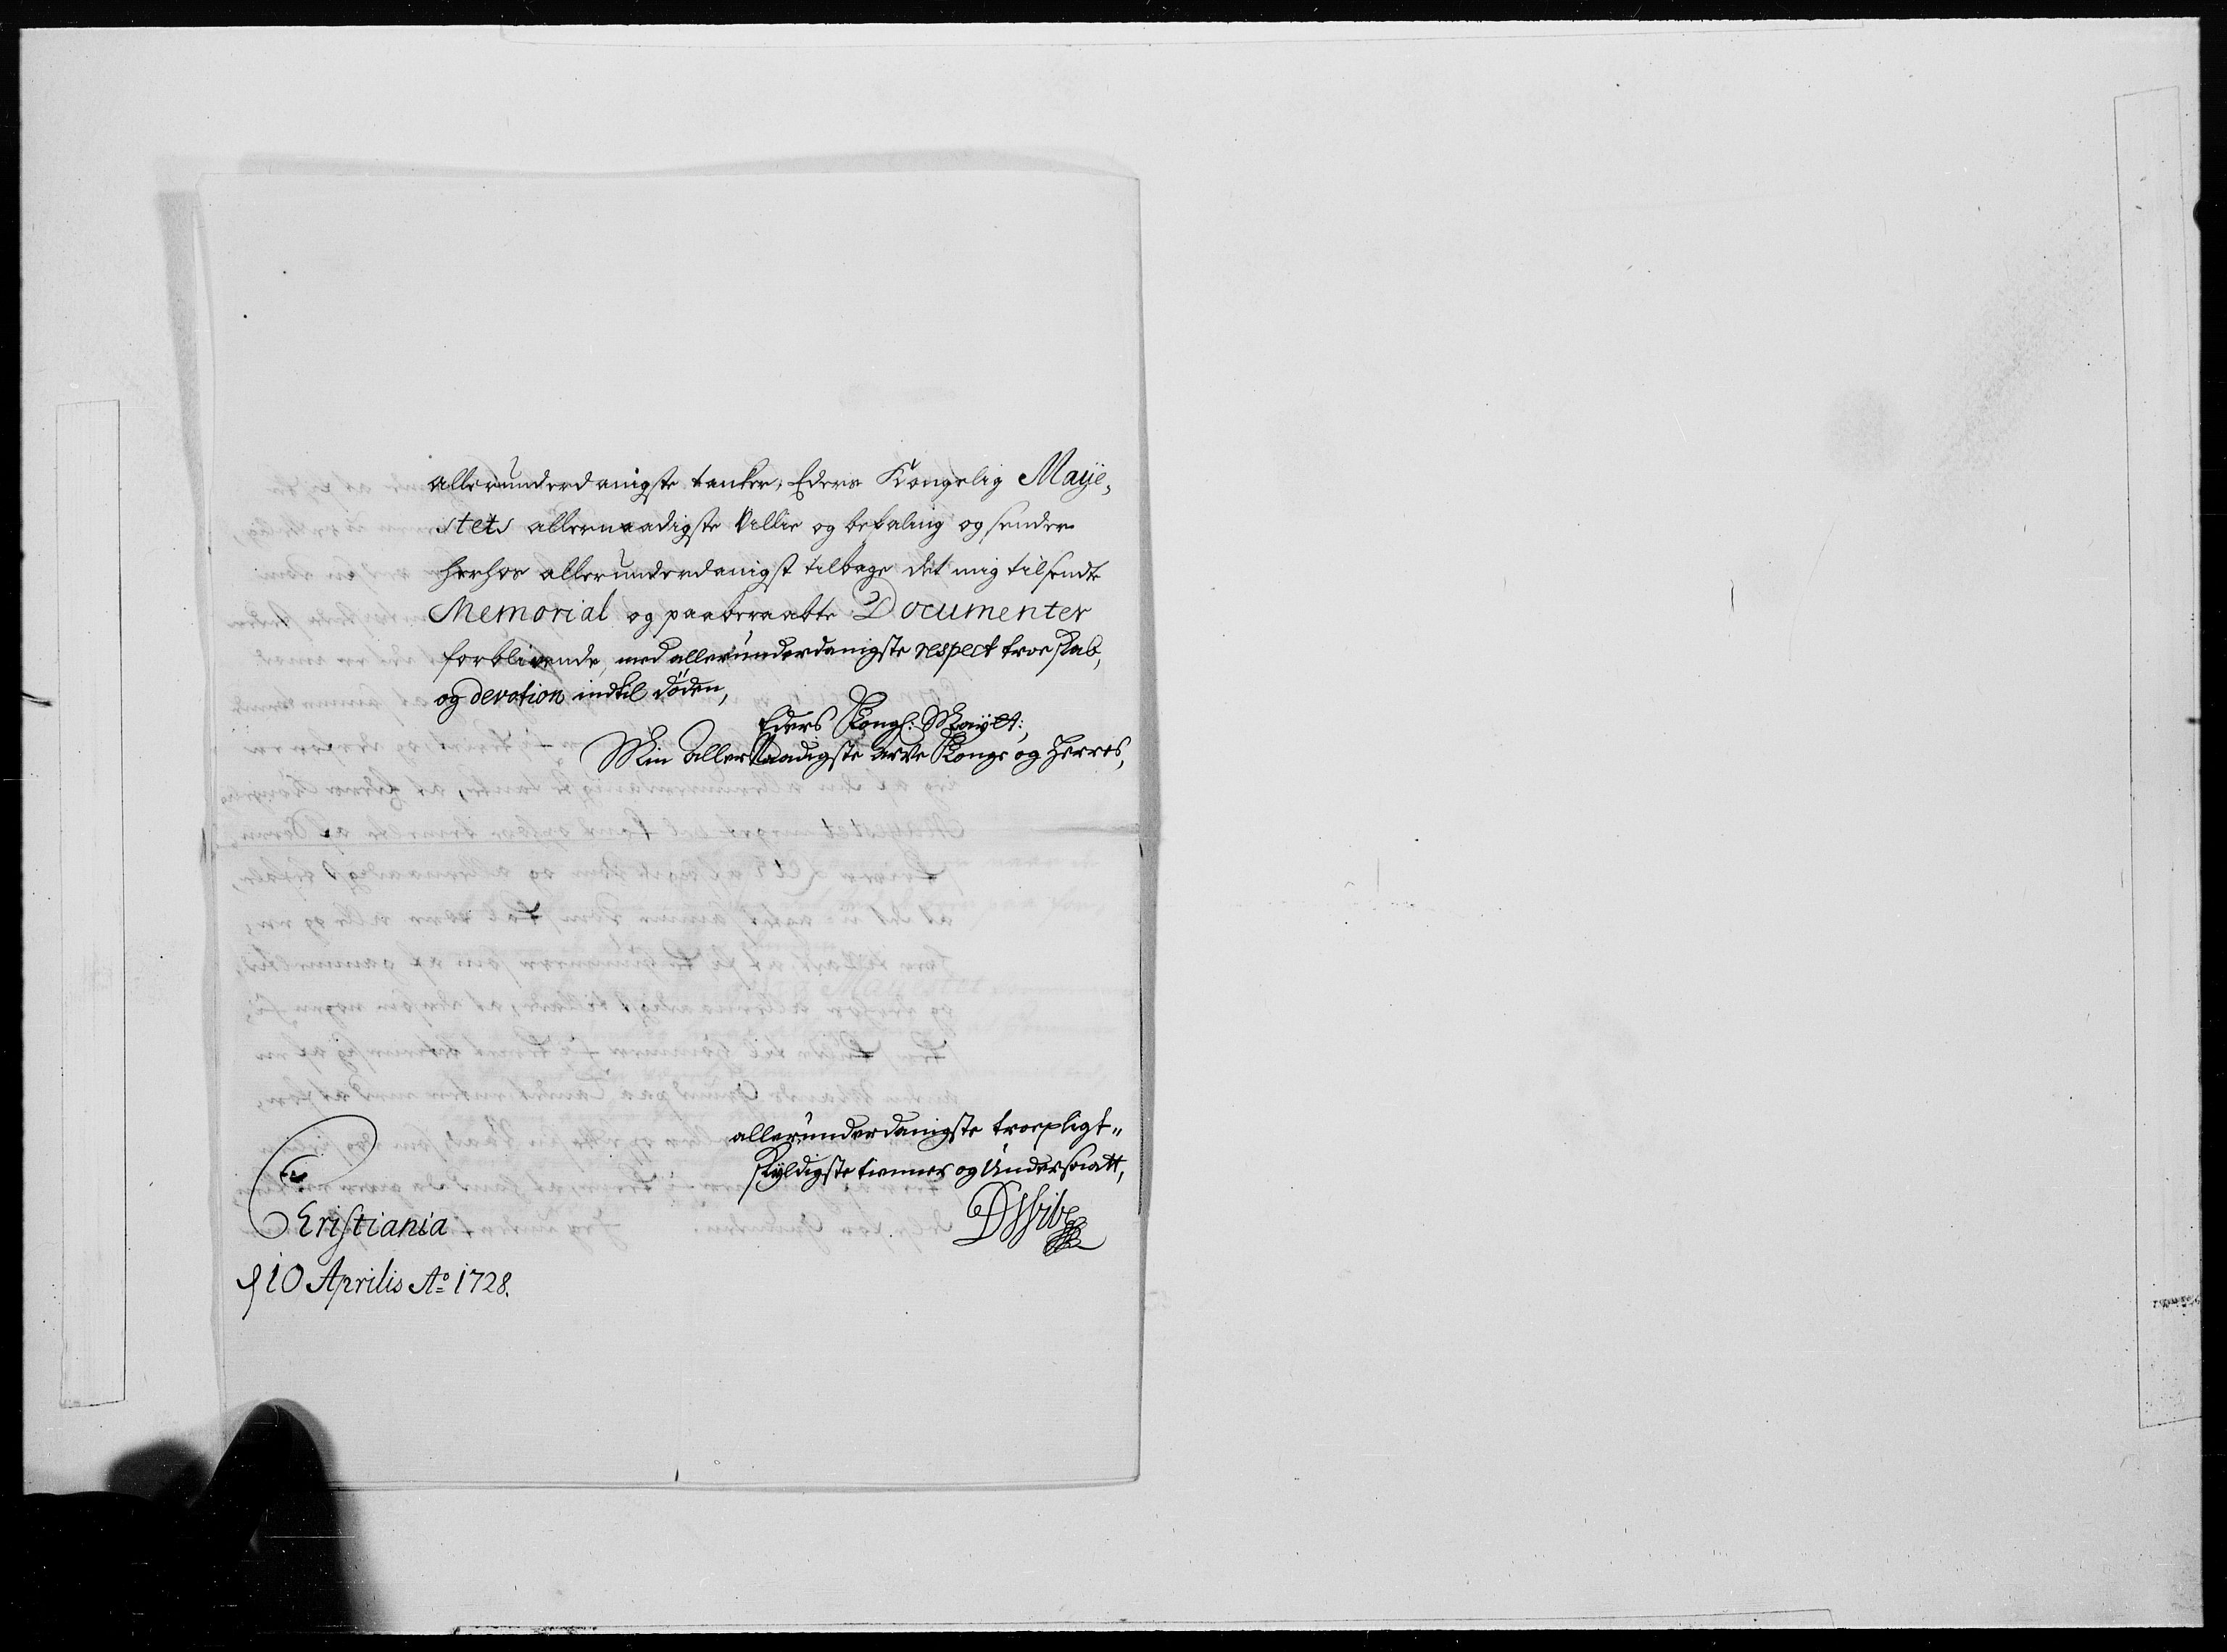 allerunderdanigste tanker, Eders Kongelig Maÿe,
stets allernaadigste Villie og befaling og sender
herhos allerunderdanigst tilbage det mig tilsendte
Memorial og paaberaabte Documenter
forblivende med allerunderdanigste respect troeskab,
og devotion indtil döden,
Eders Kongl: Mayet:,
Min allerNaadigste arve Konge og Herres,
allerunderdanigste troepligt„
skyldigste tienner og Undersaatt,
DVibe
Cristiania
d 10 Aprilis Ao 1728.